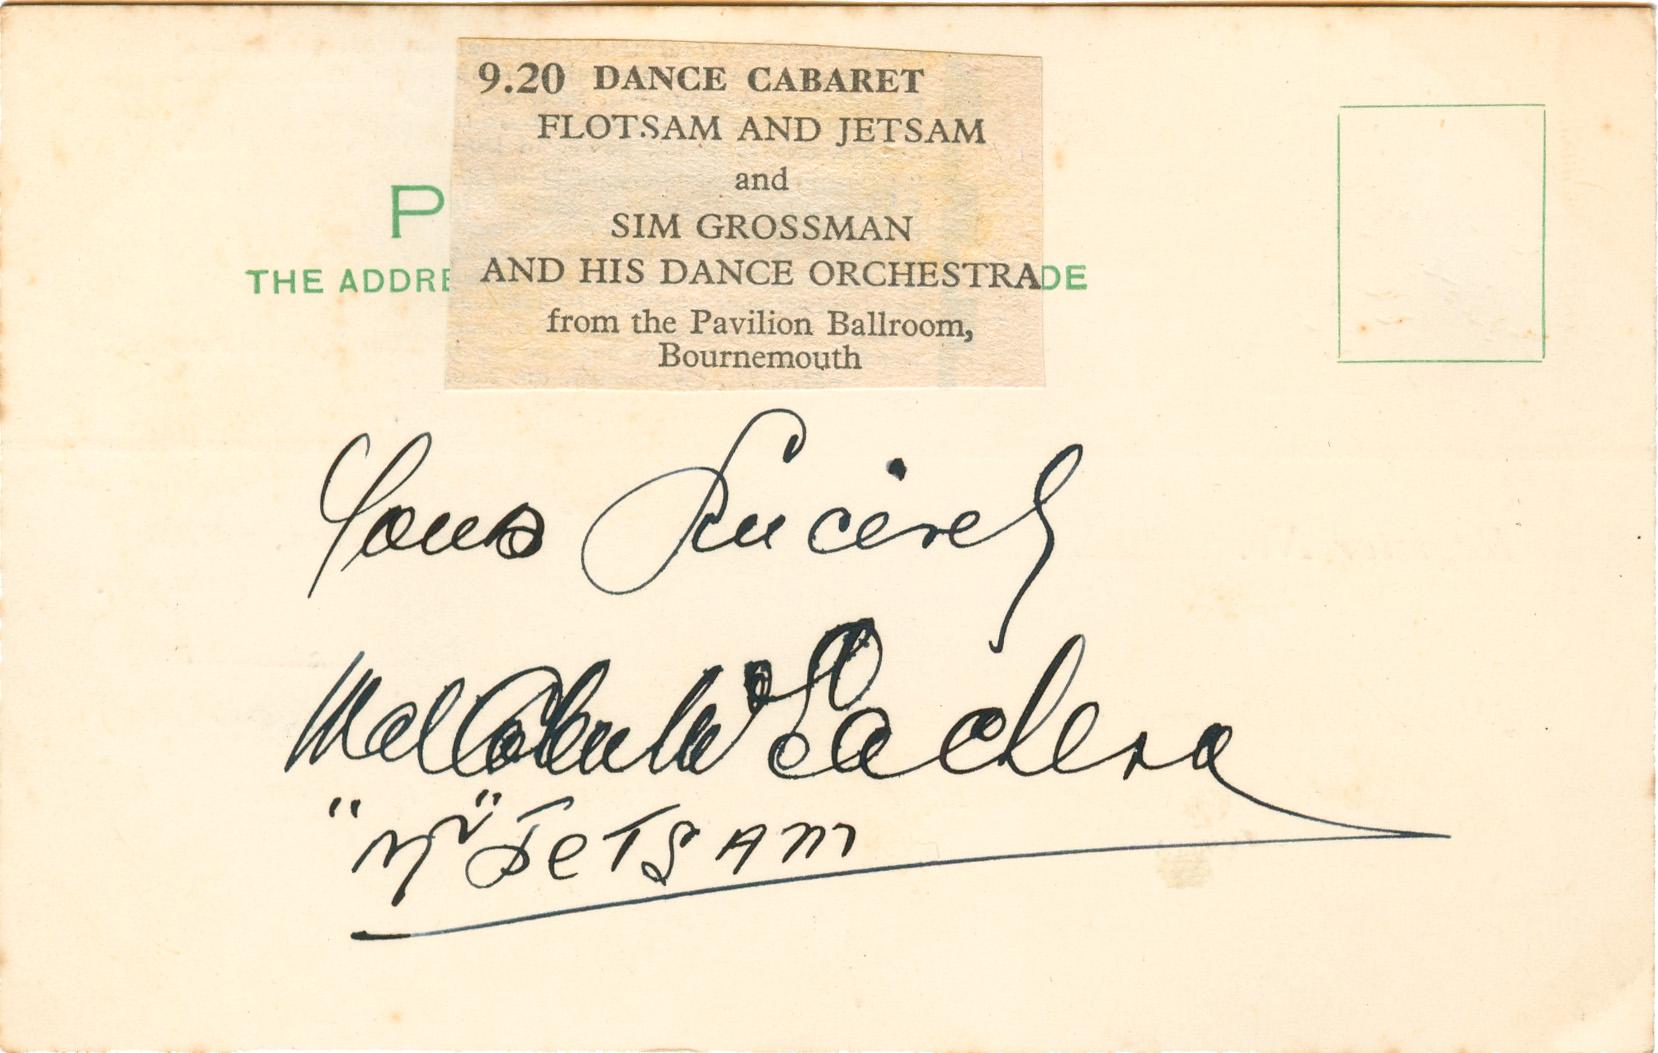 9.20 DANCE CABARET
FLOTSAM AND JETSAM
and
SIM GROSSMAN
AND HIS DANCE ORCHESTRA
from the Pavilion Ballroom,
Bournemouth
P
THE ADDRE DE
Yours Sincerely
Malcolm McEachern
"Mr" JeTSAM